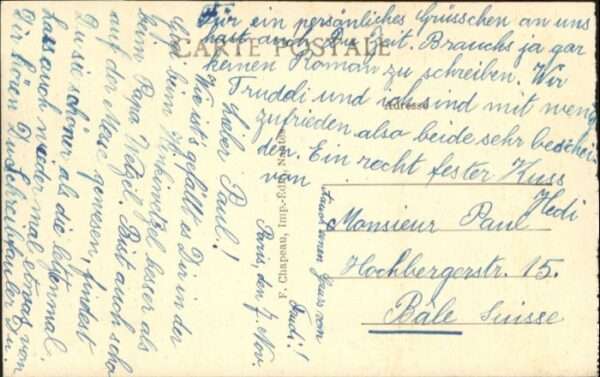 CARTE POSTALE
Adresse
F. Chapeau, Imp.-Edit., Nantes
Paris, den 7. Nov.
Lieber Paul!
Wie ist's gefällt es Dir in der
beim Hinkiwitzel besser als
beim Papa Wetzel. Bist auch scho
auf der Messe gewesen, findest
Du sie schöner als die letztenmal
Lass auch wieder mal etwas von
Dir hören Du Schreibfauler Du.
Für ein persönliches Grüsschen an uns
hast auch Zeit. Brauchs ja gar
keinen Roman zu schreiben. Wir
Truddi und ich sind mit wenig
zufrieden also beide sehr beschei
den. Ein recht fester Kuss
von Hedi
Auch einen Gruss von
Trudi!
Monsieur Paul
Hochbergerstr. 15.
Bâle Suisse